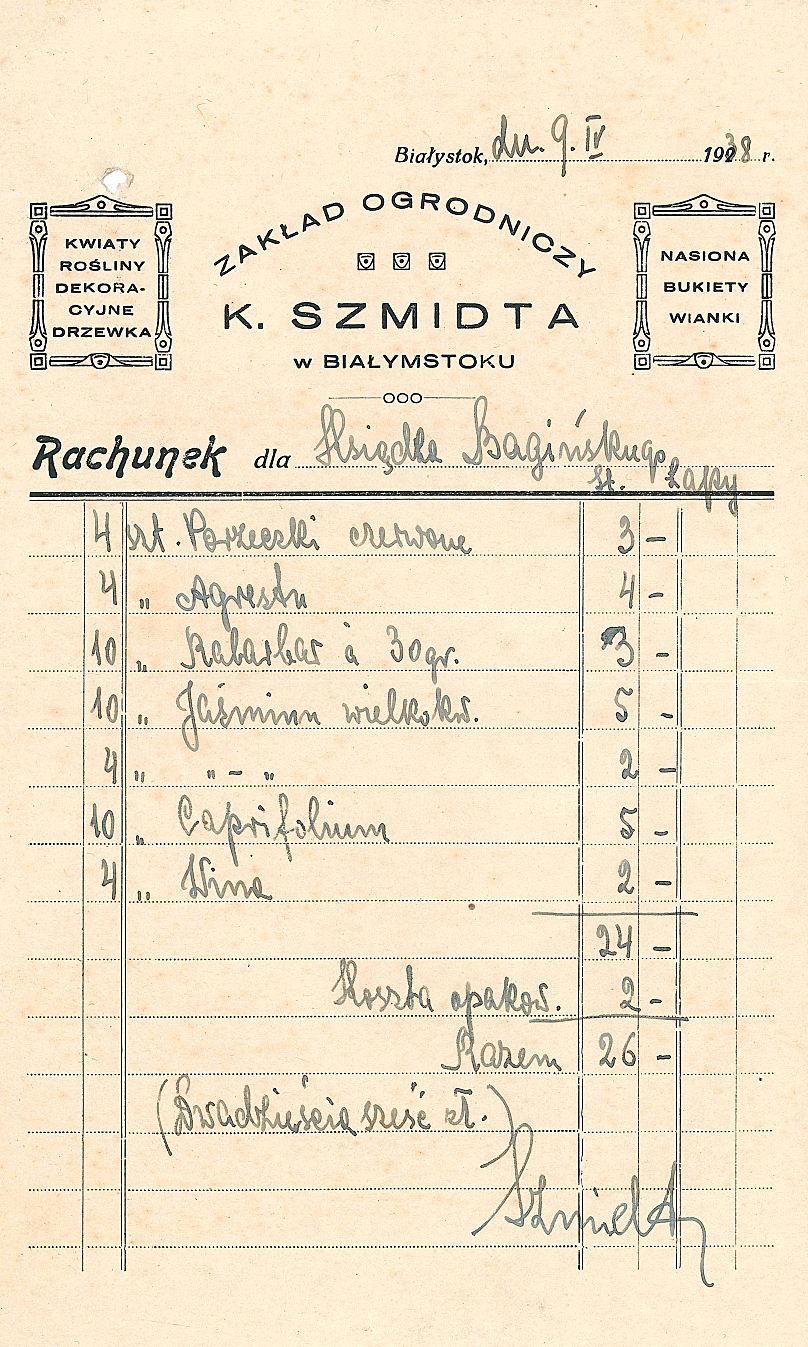 Białystok, dn. 9. IV 1938 r.
KWIATY
ROŚLINY
DEKORA-
CYJNE
DRZEWKA
ZAKŁAD OGRODNICZY
K. SZMIDTA
w BIAŁYMSTOKU
NASIONA
BUKIETY
WIANKI
Rachunek dla Księdza Bagińskiego
st. Łapy
4 szt. Porzeczki czerwone 3 -
4 " Agrestu 4 -
10 " Rabarbar à 30 gr. 3 -
10 " Jaśminu wielkokw. 5 -
4 " " - " 2 -
10 " Caprifolium 5 -
4 " Wina 2 -
24 -
Koszta opakow. 2 -
Razem 26 -
(Dwadzieścia sześć zł.)
Szmidt